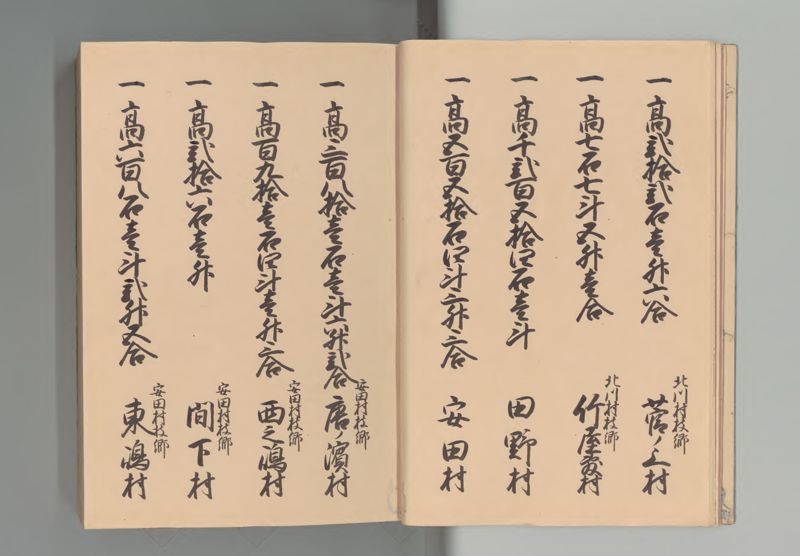 一高弐拾弐石壱升六合 北川村枝郷 菅ノ上村
一高七石七斗五升壱合 北川村枝郷 竹屋敷村
一高千弐百五拾四石壱斗 田野村
一高五百五拾石四斗三升三合 安田村
一高三百八拾壱石壱斗六升弐合 安田村枝郷 唐ノ濱村
一高百九拾壱石四斗壱升六合 安田村枝郷 西之嶋村
一高弐拾六石壱升 安田村枝郷 間下村
一高六百八石壱斗弐升五合 安田村枝郷 東嶋村